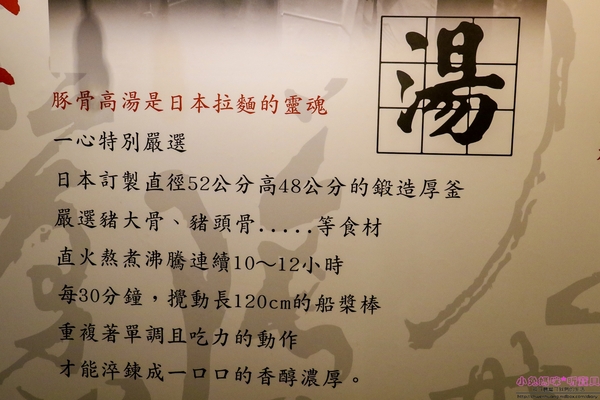 湯
豚骨高湯是日本拉麵的靈魂
一心特別嚴選
日本訂製直徑52公分高48公分的鍛造厚釜
嚴選豬大骨、豬頭骨.....等食材
直火熬煮沸騰連續10～12小時
每30分鐘，攪動長120cm的船槳棒
重複著單調且吃力的動作
才能淬鍊成一口口的香醇濃厚。